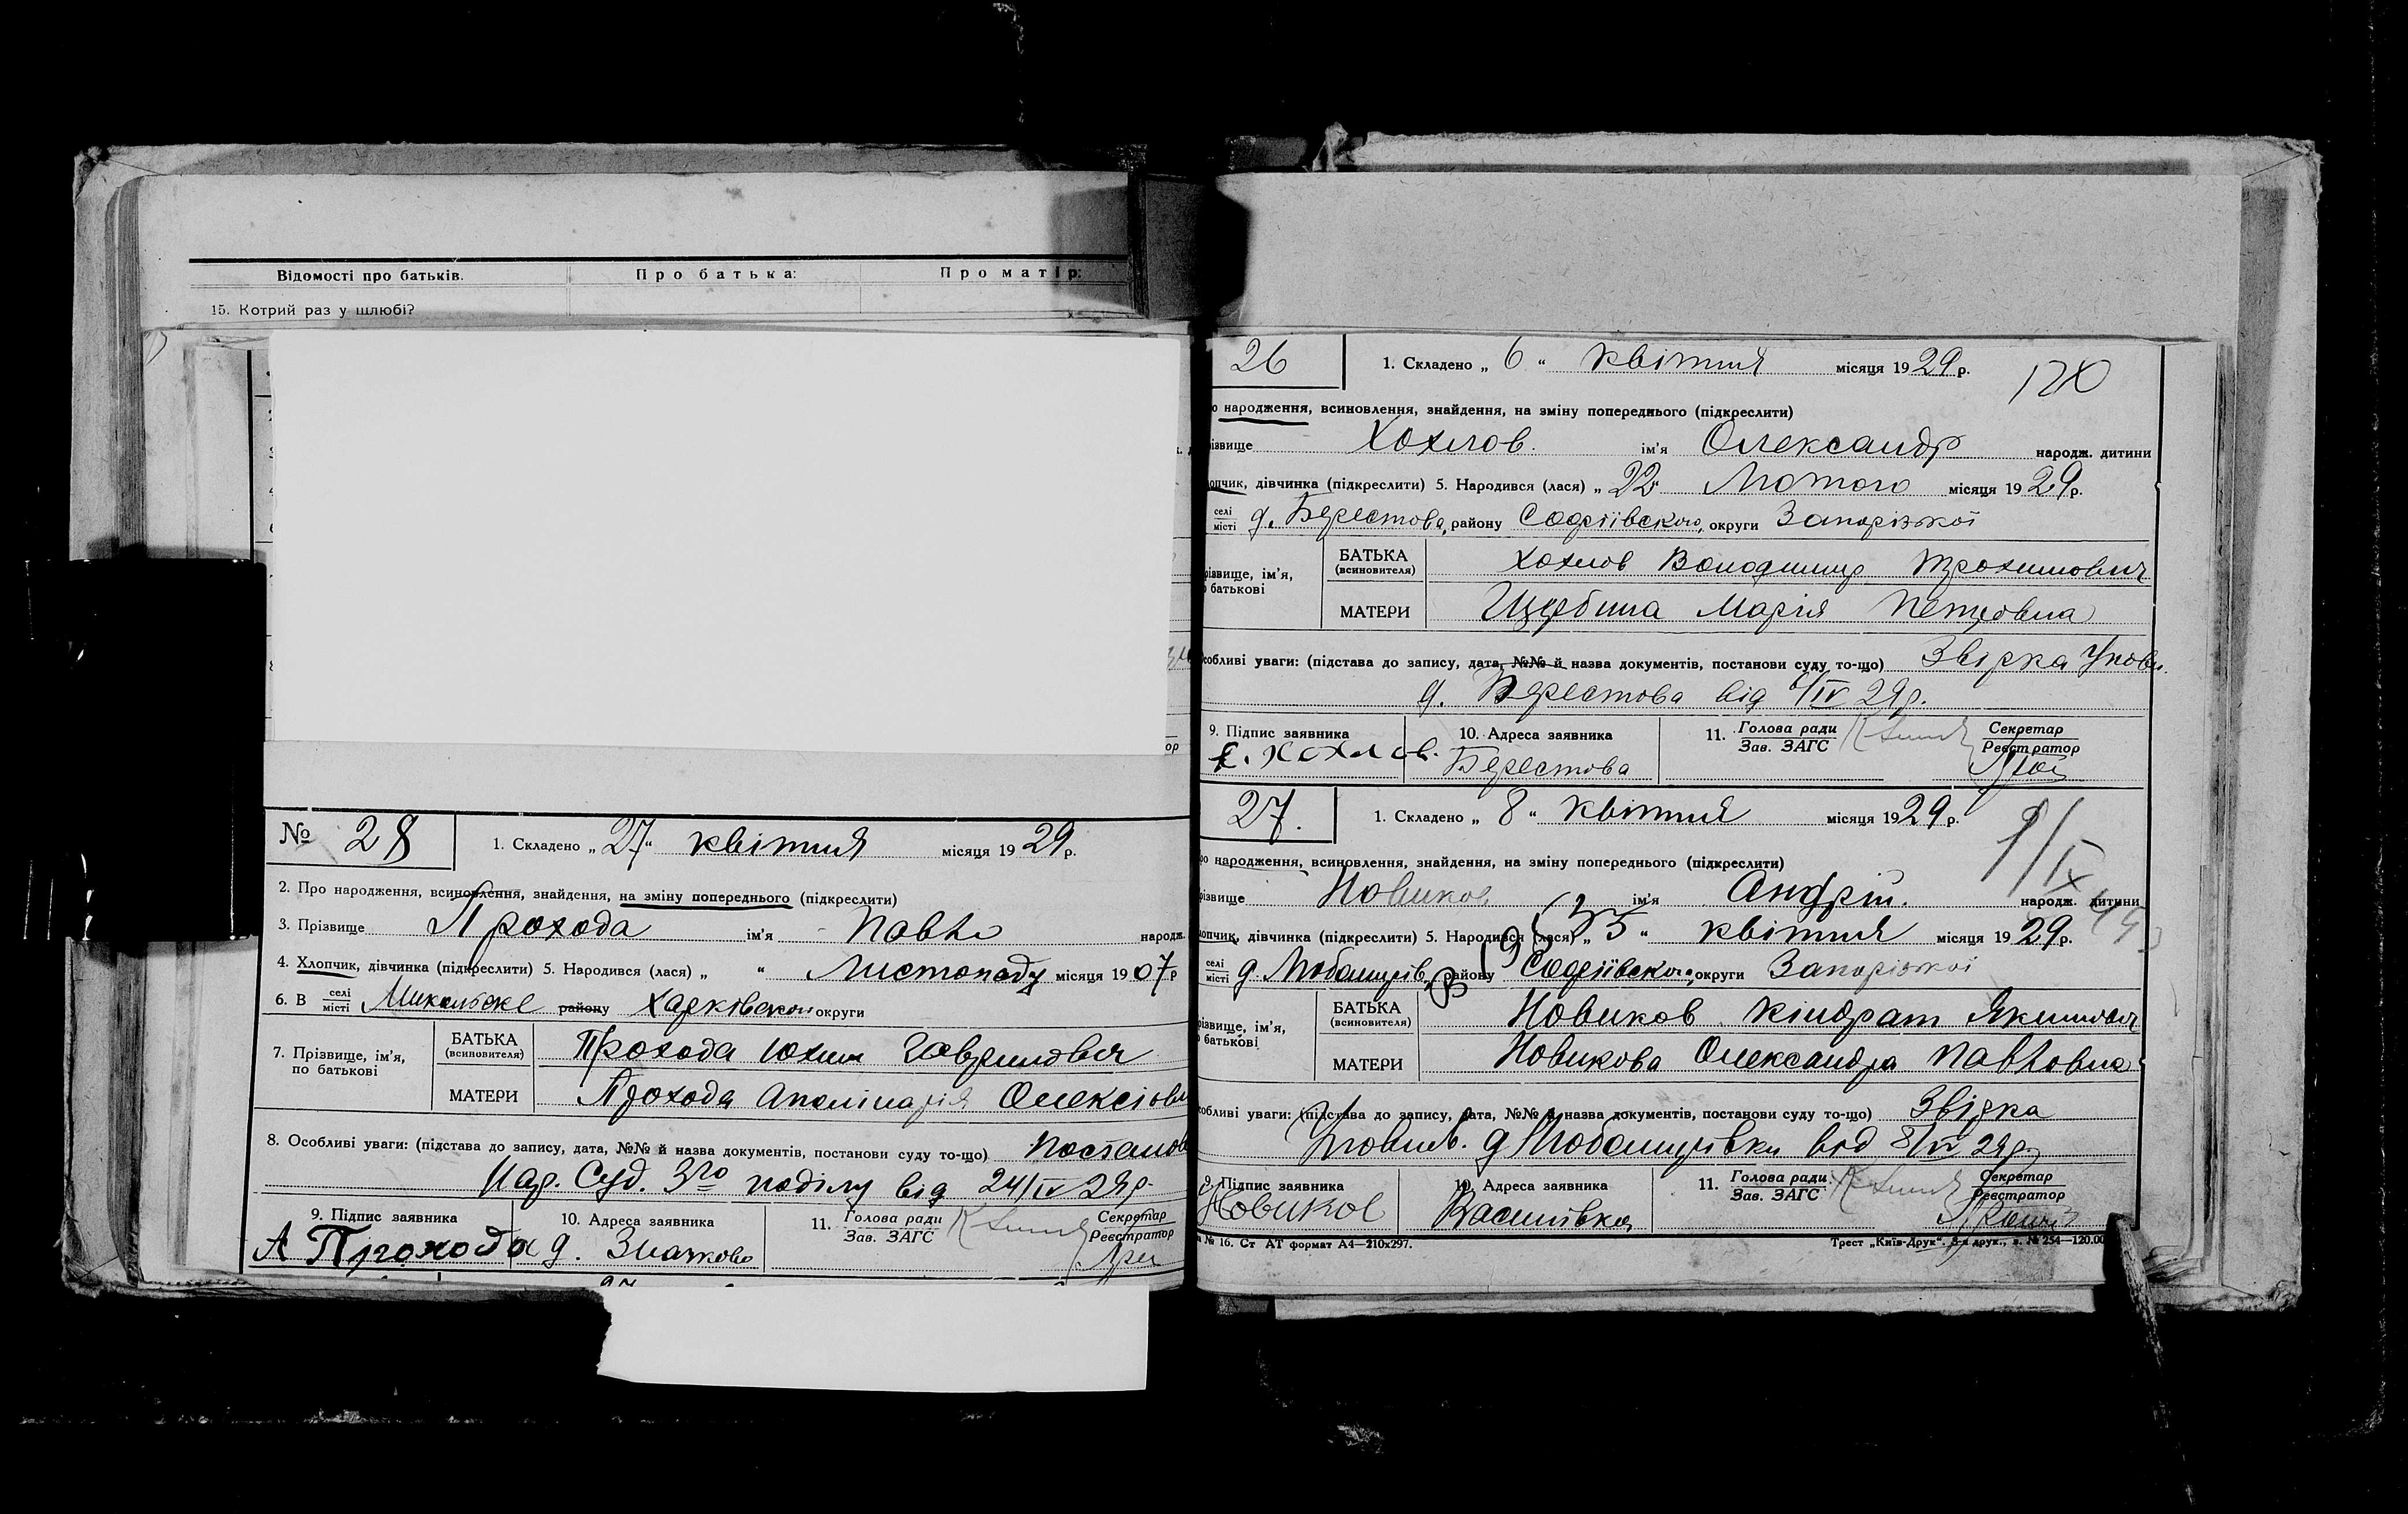 Відомості про батьків. Про батька: Про матір:
15. Котрий раз у шлюбі?
№ 28 1. Складено „27“ квітня місяця 1929 р.
2. Про народження, всиновлення, знайдення, на зміну попереднього (підкреслити)
3. Прізвище Прохода ім'я Павло народж.
4. Хлопчик, дівчинка (підкреслити) 5. Народився (лася) „ “ Листопаду місяця 1907 р
6. В селі місті Микольске району Харківської округи
7. Прізвище, ім'я, по батькові
БАТЬКА (всиновителя) Прохода Юхим Гаврилович
МАТЕРИ Прохода Аполінарія Олексіовн
8. Особливі уваги: (підстава до запису, дата, №№ й назва документів, постанови суду то-що) Постанов
Нар. Суд. 3го поділу від 24/IV 29р.
9. Підпис заявника 10. Адреса заявника 11. Голова ради Зав. ЗАГС Секретар Реєстратор
А Прохода д. Значково
26 1. Складено „6“ квітня місяця 1929 р.
120
о народження, всиновлення, знайдення, на зміну попереднього (підкреслити)
ізвище Хохлов. ім'я Олександр народж. дитини
опчик, дівчинка (підкреслити) 5. Народився (лася) „22 Лютого місяця 1929 р.
селі місті д. Берестова, району Софіївского, округи Запорізької
різвище, ім'я, батькові
БАТЬКА (всиновителя) Хохлов Володимир Трохимович
МАТЕРИ Щербина Марія Петровна
собливі уваги: (підстава до запису, дата, №№ й назва документів, постанови суду то-що) Звірка Уповн.
д. Берестова від 6/IV 29р.
9. Підпис заявника 10. Адреса заявника 11. Голова ради Зав. ЗАГС Секретар Реєстратор
Хохлов. Берестова
27. 1. Складено „8“ квітня місяця 1929 р.
о народження, всиновлення, знайдення, на зміну попереднього (підкреслити)
різвище Новиков ім'я Андрій. народж. дитини
лопчик, дівчинка (підкреслити) 5. Народився (лася) „5“ квітня місяця 1929 р.
селі місті д. району Софіївского, округи Запорізької
різвище, ім'я, батькові
БАТЬКА (всиновителя) Новиков Кіндрат Якимович
МАТЕРИ Новикова Олександра Павловна
собливі уваги: (підстава до запису, дата, №№ й назва документів, постанови суду то-що) Звірка
від 8/IV 29р.
9. Підпис заявника 10. Адреса заявника 11. Голова ради Зав. ЗАГС Секретар Реєстратор
Новиков Василівка
№ 16. Ст АТ формат А4—210х297. Трест „Київ-Друк“. 3-я друк., з. № 254—120.00